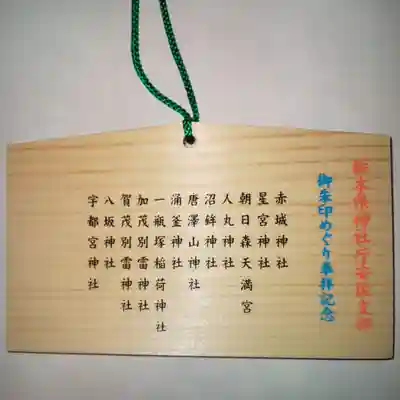 栃木県神社庁安佐支部
御朱印めぐり奉拝記念
赤城神社
星宮神社
朝日森天満宮
人丸神社
沼鉾神社
唐澤山神社
涌釜神社
一瓶塚稲荷神社
加茂別雷神社
賀茂別雷神社
八坂神社
宇都宮神社